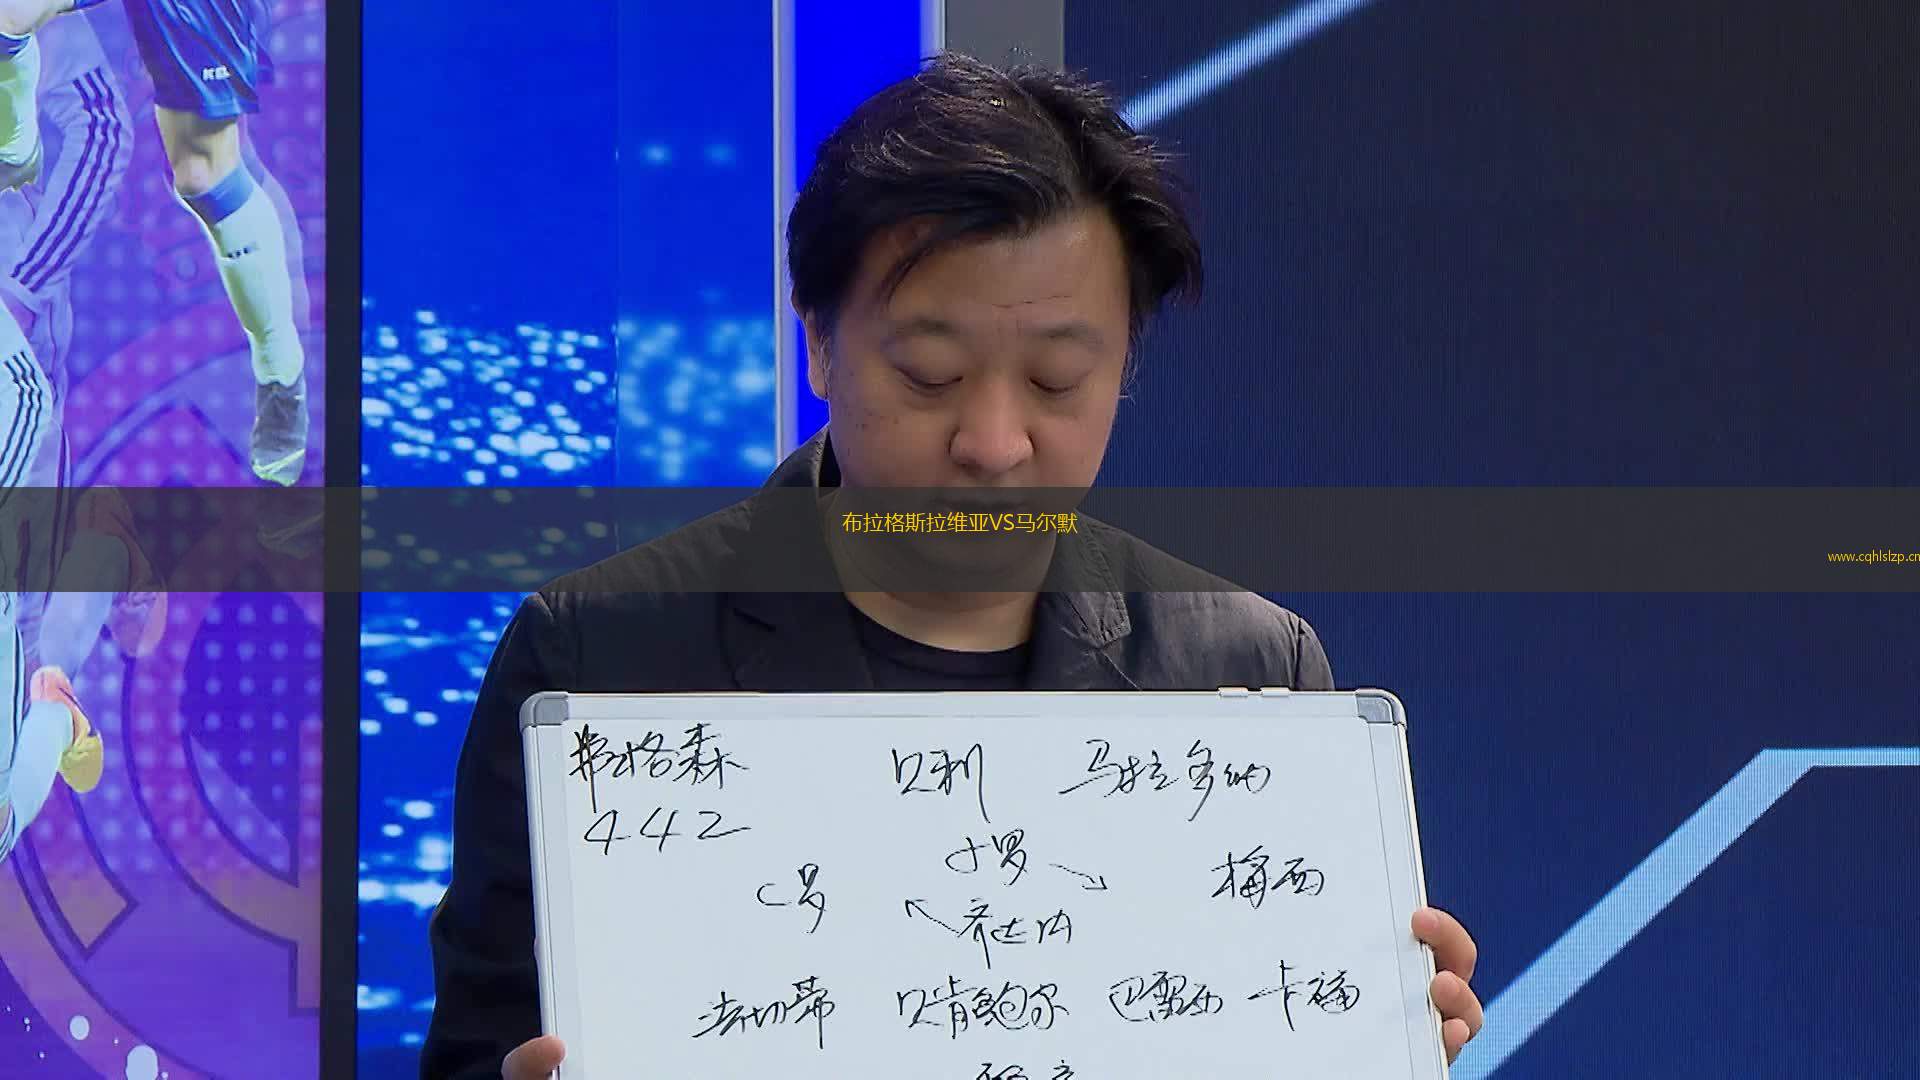 布拉格斯拉维亚VS马尔默
www.cqhlslzp.cn
弗格森 贝利 马拉多纳
442
小罗
C罗 梅西
齐达内
法切蒂 贝肯鲍尔 巴雷西 卡福